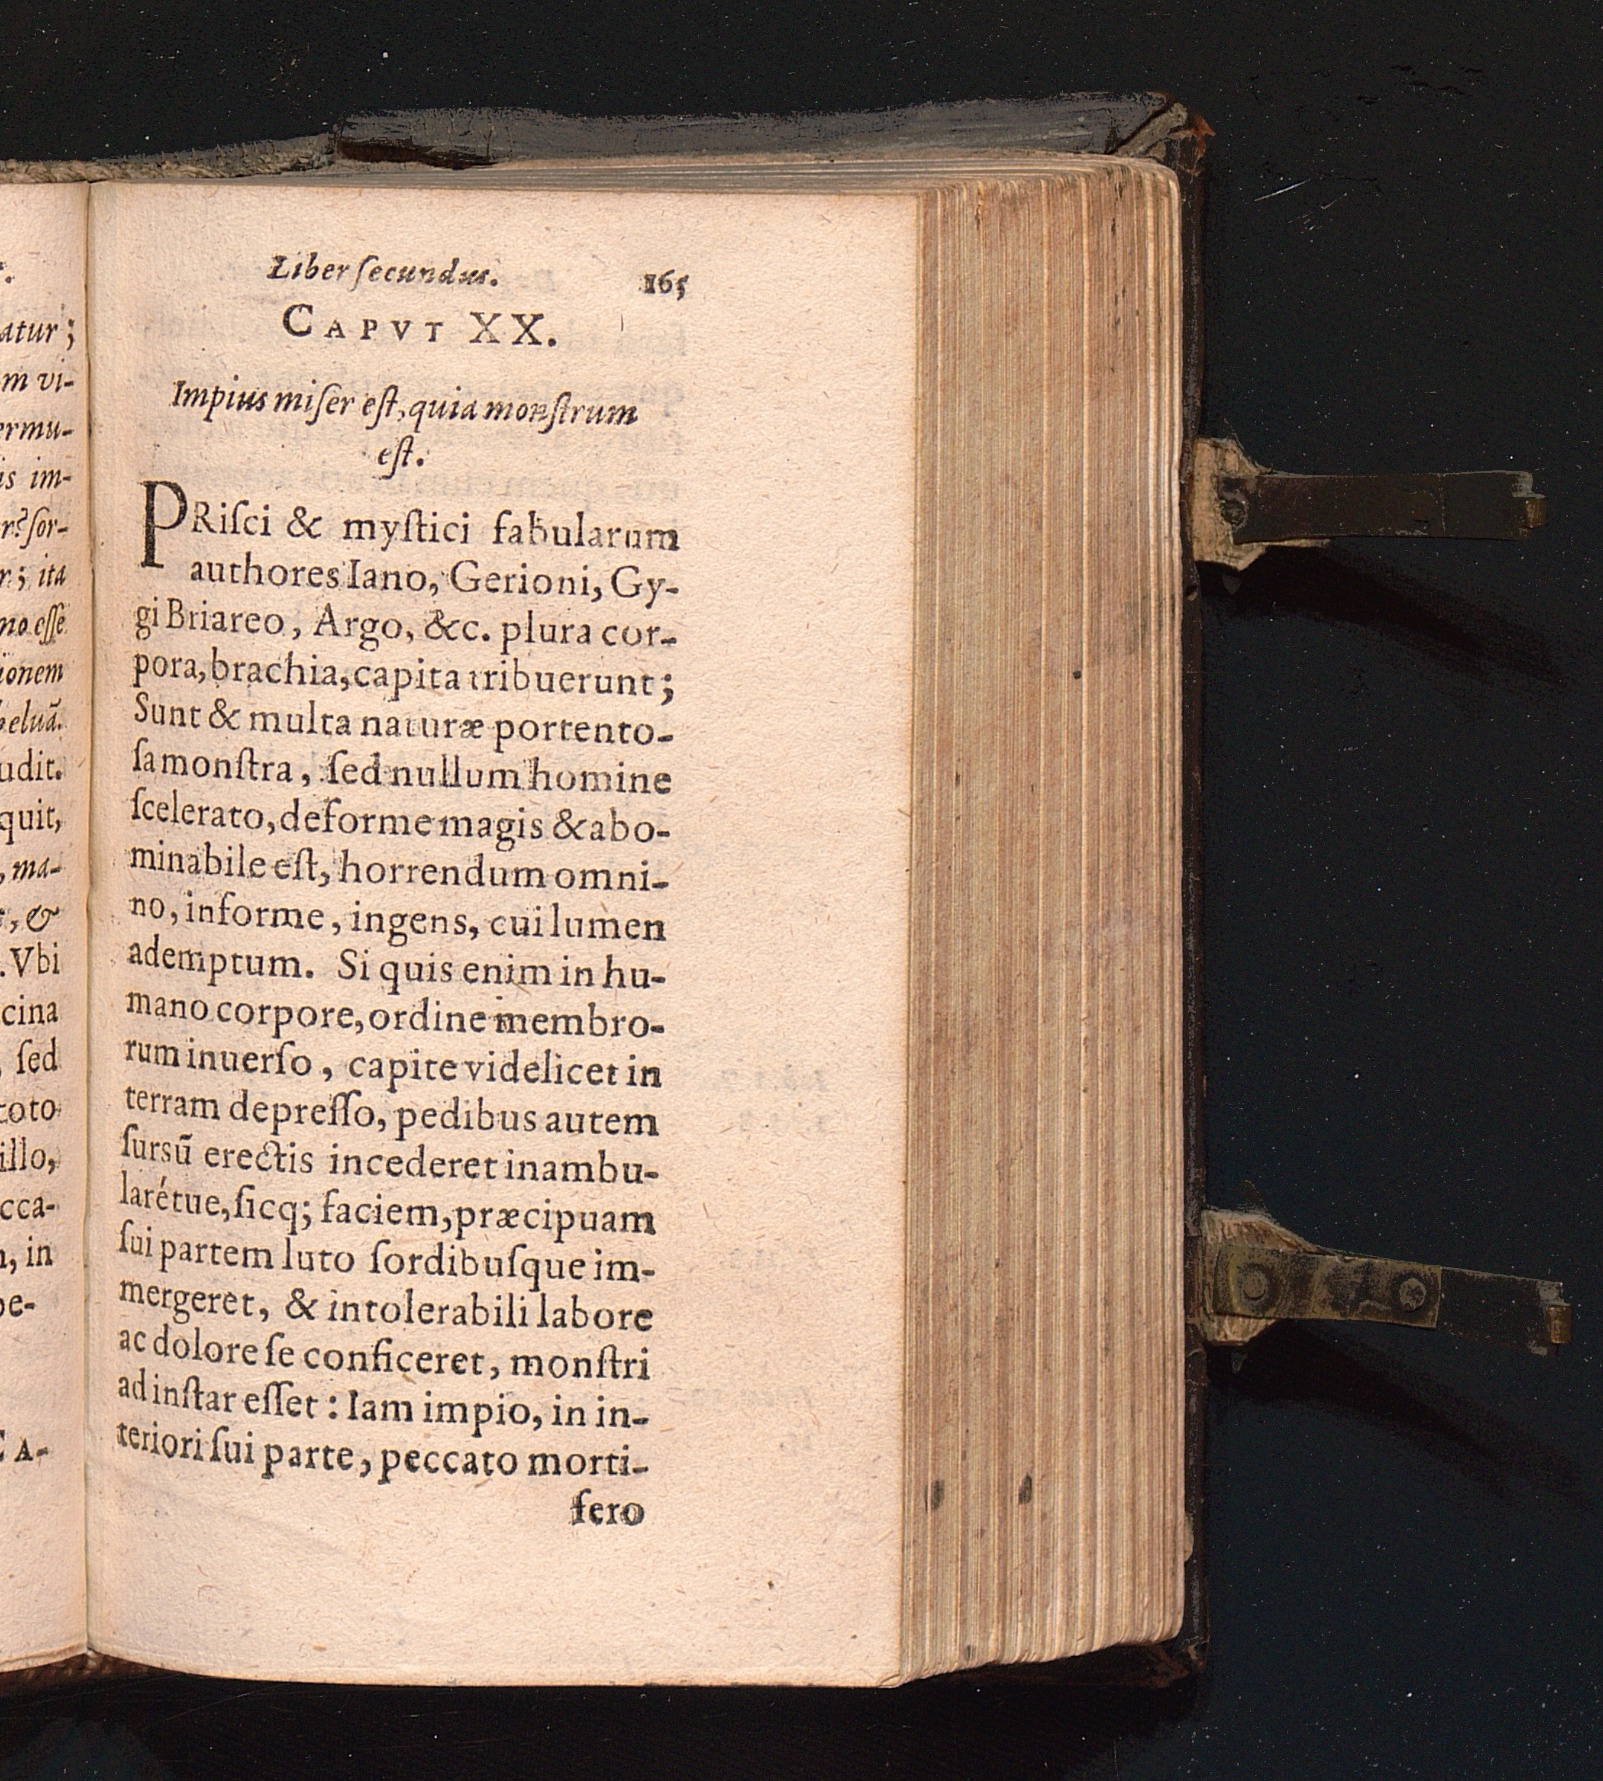 Liber ſecundus. 165
CAPVT XX.
Impius miſer eſt, quia monſtrum
eſt.
PRiſci & myſtici fabularum
authores Iano, Gerioni, Gy-
gi Briareo, Argo, &c. plura cor-
pora, brachia, capita tribuerunt;
Sunt & multa naturæ portento-
ſa monſtra, ſed nullum homine
ſcelerato, deforme magis & abo-
minabile eſt, horrendum omni-
no, informe, ingens, cui lumen
ademptum. Si quis enim in hu-
mano corpore, ordine membro-
rum inuerſo, capite videlicet in
terram depreſſo, pedibus autem
ſursū erectis incederet inambu-
larétue, ſicq; faciem, præcipuam
ſui partem luto ſordibuſque im-
mergeret, & intolerabili labore
ac dolore ſe conficeret, monſtri
ad inſtar eſſet: Iam impio, in in-
teriori ſui parte, peccato morti-
fero